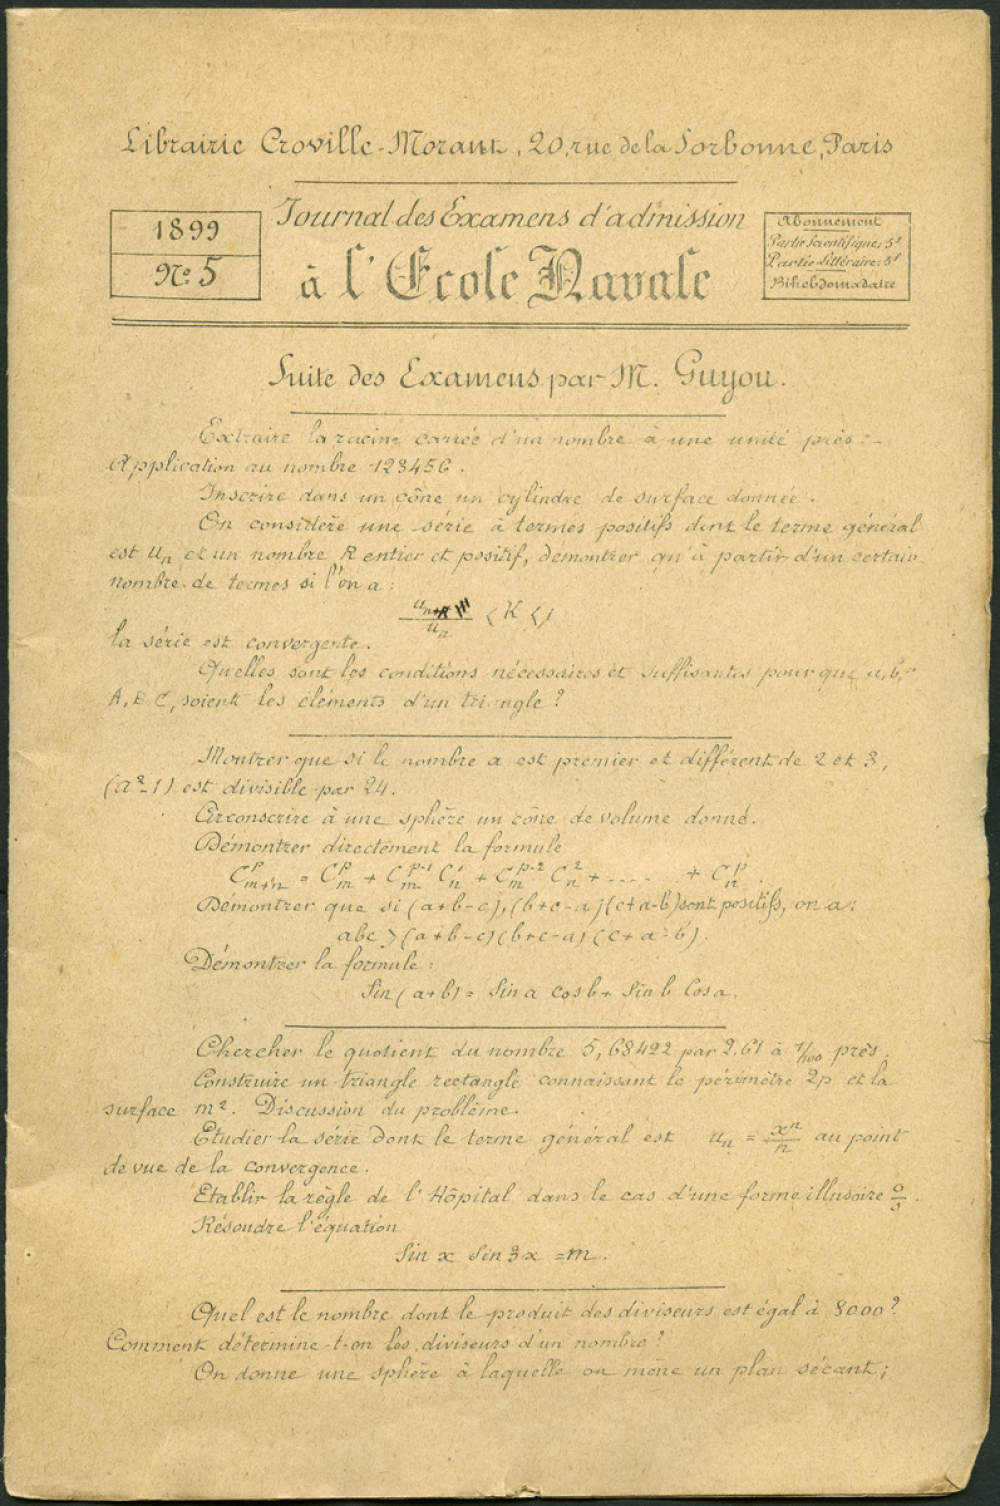 Librairie Croville-Morant, 20, rue de la Sorbonne, Paris
1899
No 5
Journal des Examens d'admission
à l'École Navale
Abonnement
Partie Scientifique: 5f
Partie Littéraire: 5f
Bihebdomadaire
Suite des Examens par M. Guyou.
Extraire la racine carrée d'un nombre à une unité près.-
Application au nombre 123456.
Inscrire dans un cône un cylindre de surface donnée.
On considère une série à termes positifs dont le terme général
est uₙ et un nombre K entier et positif, démontrer qu'à partir d'un certain
nombre de termes si l'on a:
uₙ₊₁/uₙ < K < 1
la série est convergente.
Quelles sont les conditions nécessaires et suffisantes pour que a, b, c
A, B C, soient les éléments d'un triangle?
Montrer que si le nombre a est premier et différent de 2 et 3,
(a²-1) est divisible par 24.
Circonscrire à une sphère un cône de volume donné.
Démontrer directement la formule
Cᵖₘ₊ₙ = Cᵖₘ + Cᵖ⁻¹ₘ C¹ₙ + Cᵖ⁻²ₘ C²ₙ + .... + Cᵖₙ.
Démontrer que si (a+b-c), (b+c-a) (c+a-b) sont positifs, on a:
abc > (a+b-c) (b+c-a) (c+a-b).
Démontrer la formule:
Sin (a+b) = Sin a cos b + Sin b Cos a.
Chercher le quotient du nombre 5,68422 par 2.61 à 1/100 près.
Construire un triangle rectangle connaissant le périmètre 2p et la
surface m². Discussion du problème.
Etudier la série dont le terme général est uₙ = xⁿ/n au point
de vue de la convergence.
Etablir la règle de l'Hôpital dans le cas d'une forme illusoire 0/0.
Résoudre l'équation
Sin x Sin 3x = m.
Quel est le nombre dont le produit des diviseurs est égal à 8000?
Comment détermine-t-on les diviseurs d'un nombre?
On donne une sphère à laquelle on mène un plan sécant;